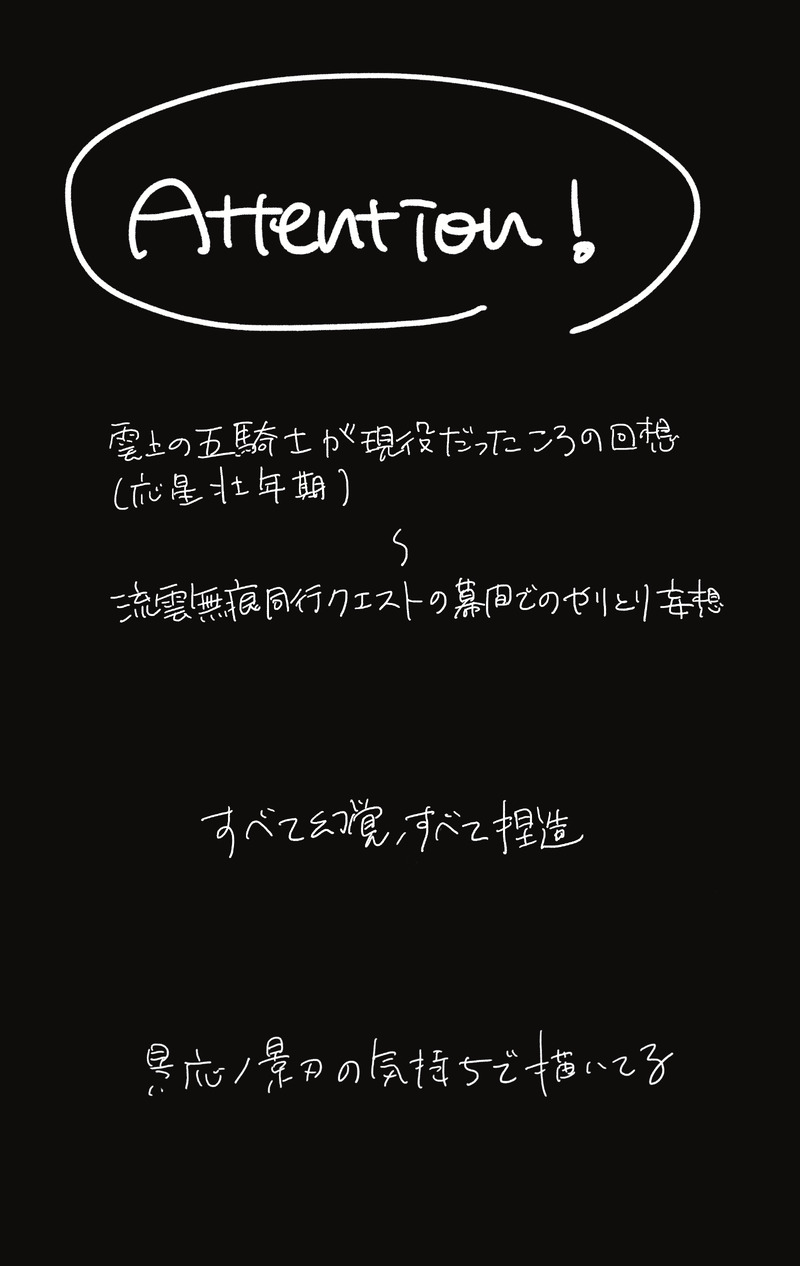 Attention!
雲上の五騎士が現役だったころの回想
(応星壮年期)
~
流雲無痕同行クエストの幕間でのやりとり妄想
すべて幻覚/すべて捏造
景応/景刃の気持ちで描いてる